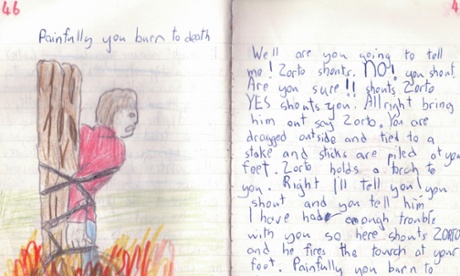 46
Painfully you burn to death
4
Well are you going to tell
me! Zorto shouts. NO! you shout.
Are you sure!! shouts Zorto
YES shouts you. All right bring
him out say Zorto. You are
dragged outside and tied to a
stake and sticks are piled at your
feet. Zorto holds a torch to
you. Right I'll tell you! you
shout and you tell him
I have had enough trouble
with you so here shouts ZORTO
and he fires the tourch at your
foot. Painfully you burn to